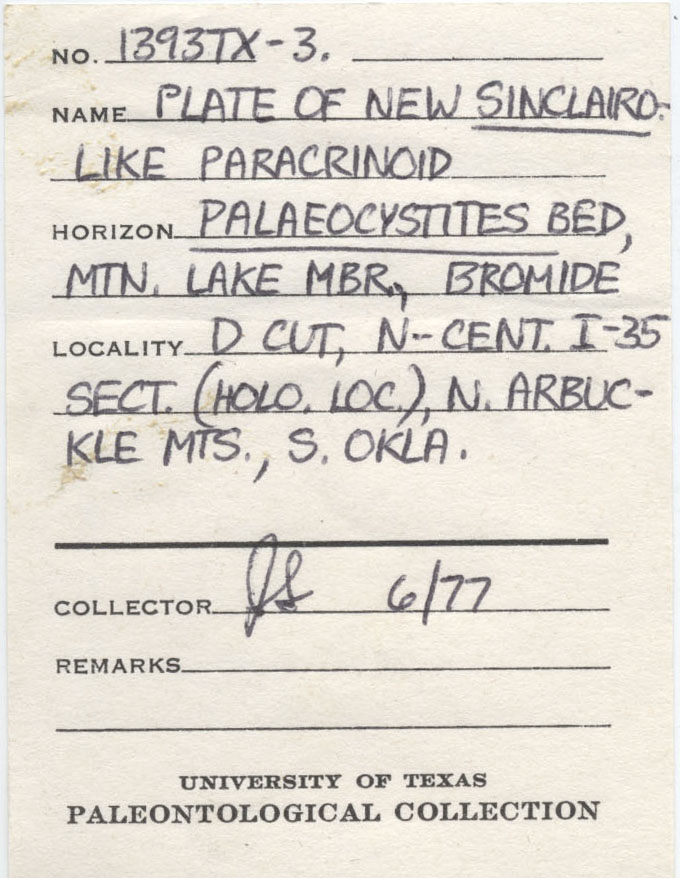 NO. 1393TX-3.
NAME PLATE OF NEW SINCLAIRO-
LIKE PARACRINOID
HORIZON PALAEOCYSTITES BED,
MTN. LAKE MBR., BROMIDE
LOCALITY D CUT, N-CENT. I-35
SECT. (HOLO. LOC.), N. ARBUC-
KLE MTS., S. OKLA.
COLLECTOR 6/77
REMARKS
UNIVERSITY OF TEXAS
PALEONTOLOGICAL COLLECTION